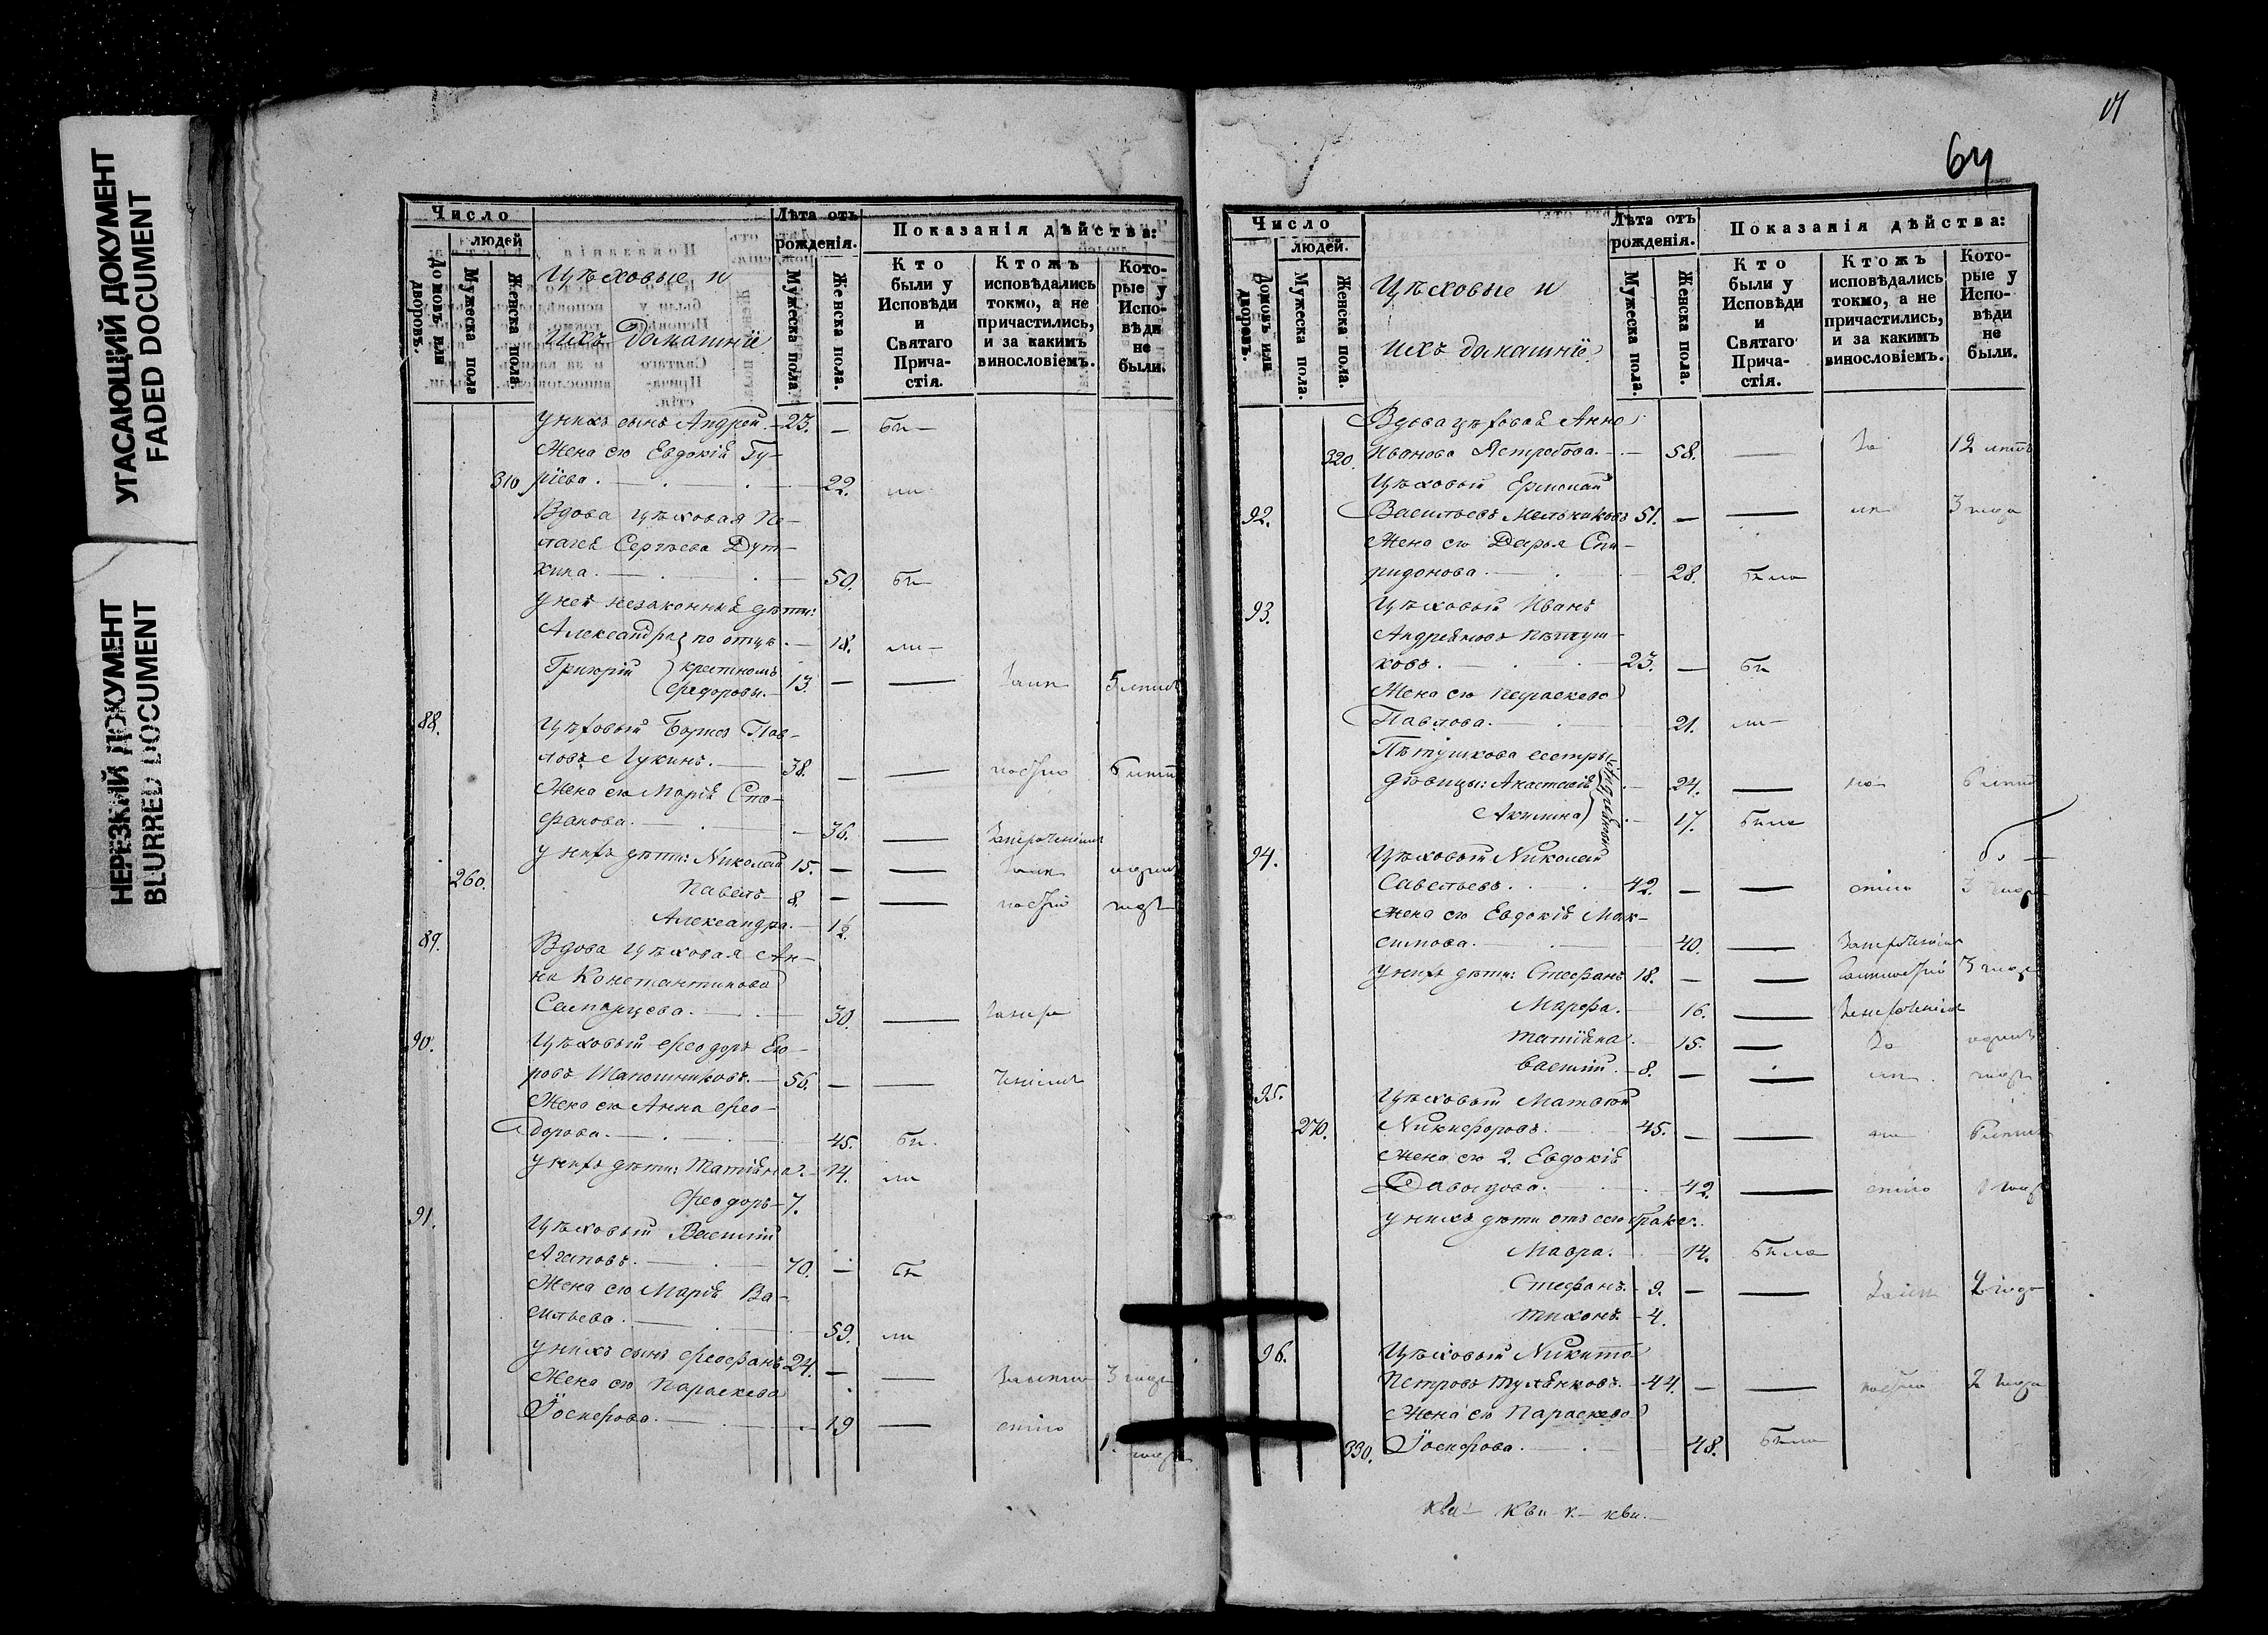 УГАСАЮЩИЙ ДОКУМЕНТ
FADED DOCUMENT
НЕРЕЗКИЙ ДОКУМЕНТ
BLURRED DOCUMENT
Число
людей
Домовъ или дворовъ.
Мужеска пола
Женска пола.
Цѣховые и
ихъ домашніе
Лѣта отъ рожденія.
Мужеска пола.
Женска пола.
Показанія дѣйства:
Кто были у Исповѣди и Святаго Причастія.
Ктожъ исповѣдались токмо, а не причастились, и за какимъ винословіемъ.
Которые у Исповѣди не были.
У нихъ сынъ Андрей. 23. —
Жена его Евдокія Гу-
310 ріева. 22.
Вдова цѣховая Пе-
лагея Сергѣева Дут-
кина. 50.
У ней незаконныя дѣти:
Александра по отцу 18.
Григорій крестному Федоровы. 13. —
88. Цѣховый Борисъ Пав-
ловъ Лукинъ. 38. —
Жена его Марія Сте-
фанова. 36.
У нихъ дѣти: Николай 15. —
260. Павелъ 8. —
Александра. 1½.
89. Вдова цѣховая Ан-
на Константинова
30.
90. Цѣховый Феодоръ Его-
ровъ Шапошниковъ. 56. —
Жена его Анна Фео-
дорова. 45.
У нихъ дѣти: Татіяна. 14.
Феодоръ 7.
91. Цѣховый Василій
Агаповъ. 70. —
Жена его Марія Ва-
сильева. 59.
У нихъ сынъ Феофанъ 24. —
Жена его Параскева
Іосифова. 19
64
Число
людей.
Домовъ или дворовъ.
Мужеска пола.
Женска пола.
Цѣховые и
ихъ домашніе
Лѣта отъ рожденія.
Мужеска пола.
Женска пола.
Показанія дѣйства:
Кто были у Исповѣди и Святаго Причастія.
Ктожъ исповѣдались токмо, а не причастились, и за какимъ винословіемъ.
Которые у Исповѣди не были.
Вдова цѣховая Анна
320. Иванова Ястребова. 58. — 12 лѣтъ
Цѣховый Ермолай
92. Васильевъ Мельниковъ 51. — 3 года
Жена его Дарья Спи-
ридонова. 28. была
93. Цѣховый Иванъ
Андреяновъ Пѣтуш-
ковъ. 23. —
Жена его Параскева
Павлова. 21.
Пѣтушкова сестры
дѣвицы: Анастасія Андреяновы 24.
Акилина 17. была
94. Цѣховый Николай
Савельевъ. 42. —
Жена его Евдокія Мак-
симова. 40.
У нихъ дѣти: Стефанъ 18. — 3 года
Марфа. 16.
Татіяна. 15.
Василій. 8. —
95. Цѣховый Матвей
270. Никифоровъ. 45. —
Жена его 2. Евдокія
Давыдова. 42.
У нихъ дѣти отъ сего брака:
Мавра. 14. была
Стефанъ. 9. — 2 года
Тихонъ. 4.
96. Цѣховый Никита
Петровъ Туляковъ. 44. — 2 года
Жена его Параскева
330. Іосифова. 48. была